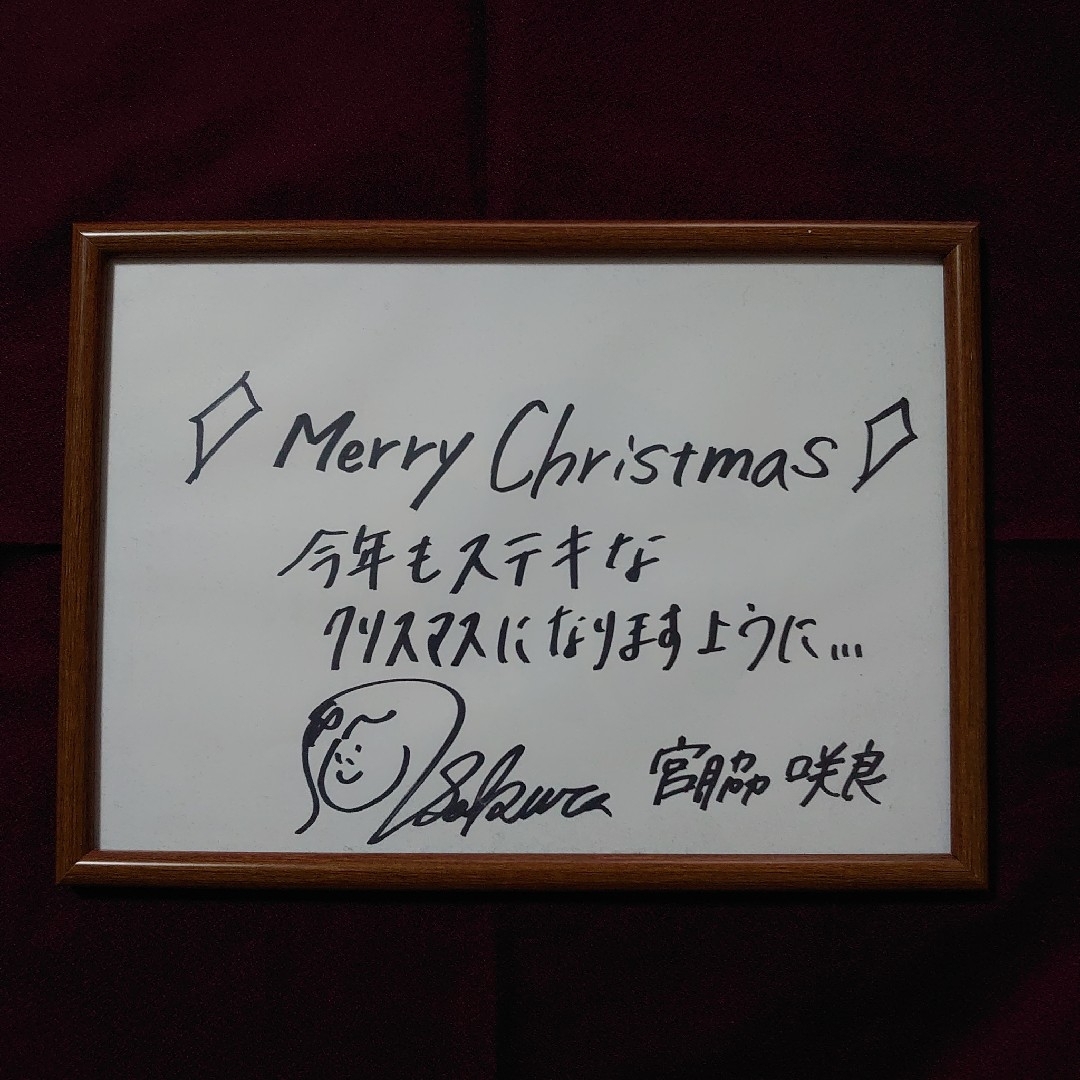 Merry Christmas
今年もステキな
クリスマスになりますように...
Sakura 宮脇 咲良